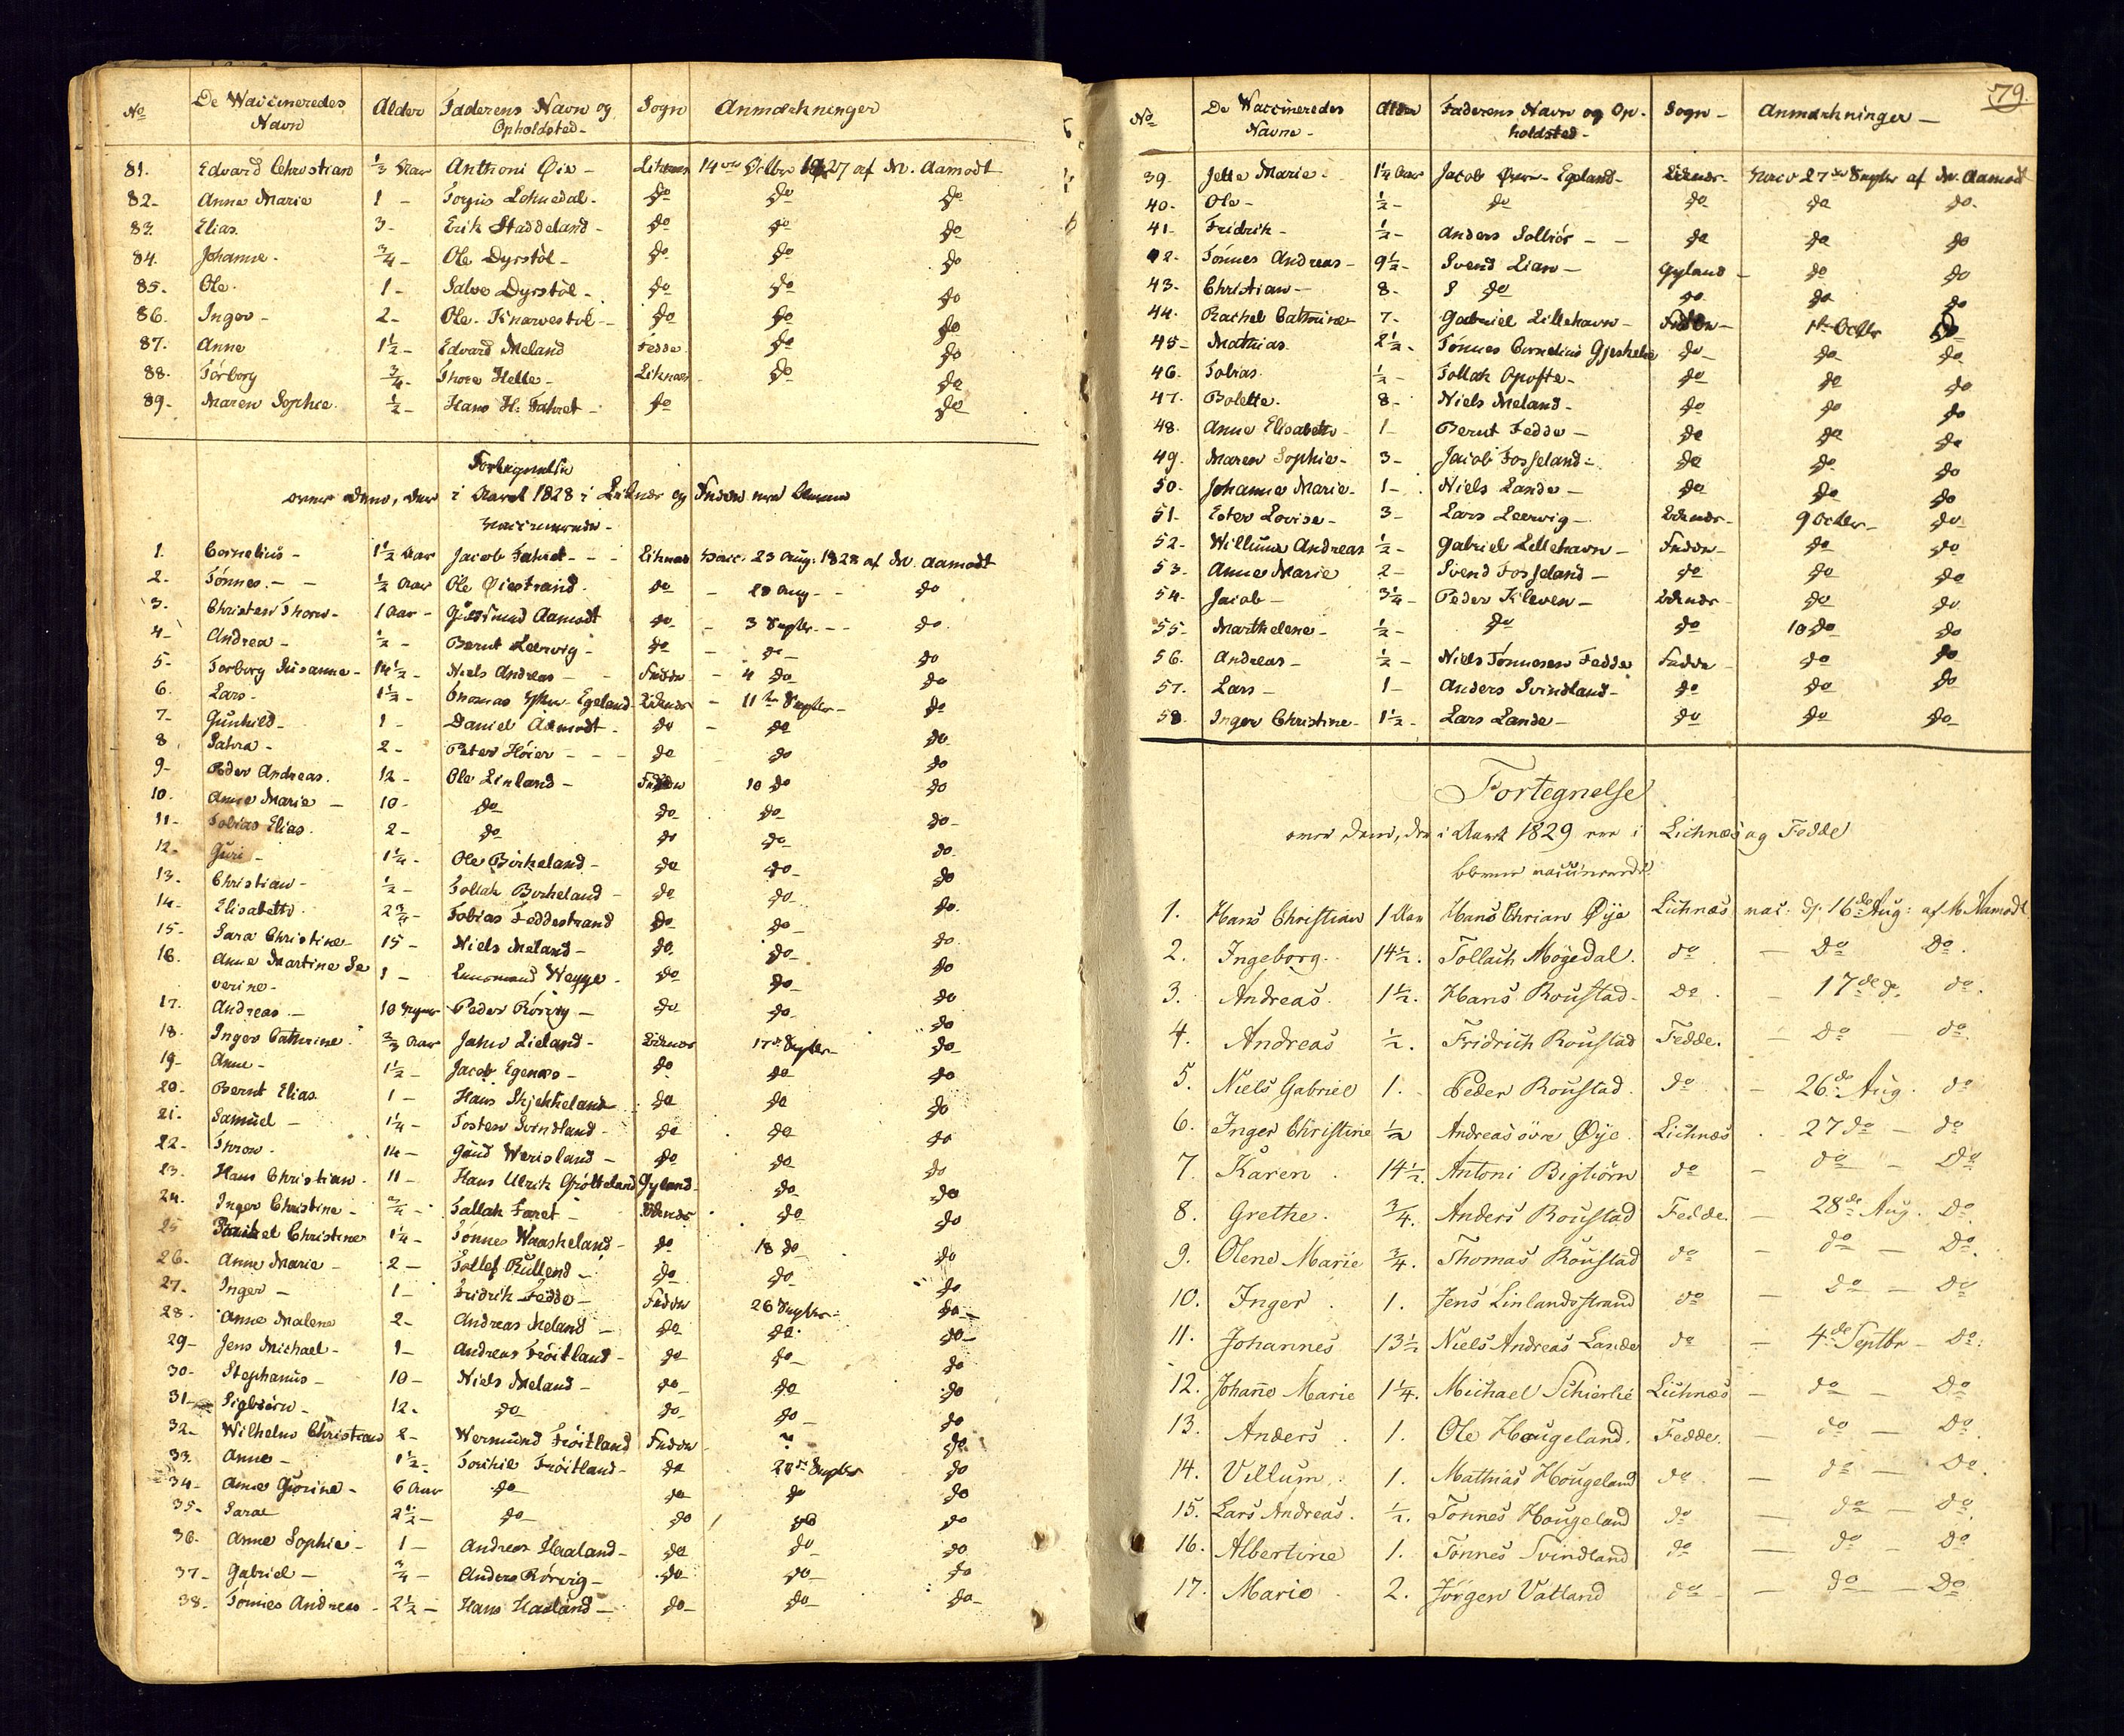 No De Vaccineredes Navn Alder Faderens Navn og Opholdsted- Sogn Anmærkninger
81. Edvard Christian 1/3 Aar Anthoni Øie - Liknæs 14de Octbr 1827 af M. Aamodt
82- Anne Marie 1 - do do do
83. Elias. 3- Erik Staddeland - do do do
84. Johanne. 3/4- Ole Dyrstöl - do. do do
85. Ole. 1- Salve Dyrstöl - do do do
86. Inger - 2- Ole Knarvestöl - do do do
87. Anne 1 1/2- Edvard Meland Fedde do do
88. Torborg 3/4- Thore Helle - Liknæs do do
89- Maren Sophie. 1/2- Hans H: Fahret - do do
Fortegnelse
over dem, der i Aaret 1828 i Liknæs og Fedde ere blevne
vaccinerede -
1. Cornelius - 1 1/2 Aar Jacob Fahret - - - Liknæs vacc. 23 Aug: 1828 af M. Aamodt
2- Tönnes. - - 1/2 Aar Ole Øiestrand. do - 29 Aug - - do
3- Christen Thore - 1 Aar - Gudmund Aamodt do - 3 Septbr. - - do.
4- Andrea - 1/2 - Bernt Leervig - do - do - do
5- Torborg Susanne - 14 1/2- Niels Andreas - - Fedde - 4 do do
6. Lars - 1 1/2- Thomas Egeland Liknæs - 11te Septbr - do
7- Gunhild - 1 - Daniel Aamodt - do - do do
8 2- Peter Höier - - - do do do
9- Peder Andreas. 12- Ole Linland - Fedde 10 do do
10. Anne Marie - 10- do do do do-
11- Tobias Elias. 2- do do do do.
12- Guri - 1 1/4- Ole Birkeland - do do- do
13- Christian - 1/2- Tollak Birkeland - do do- do.
14- Elisabeth. 2 3/4- Tobias Feddestrand do do- do.
15- Sara Christine - 15- Niels Meland - do. do- do
16. Anne Martine Se 1 - Weyge - do do- do
verine -
17. Andreas - 10 Peder Rörvig - do do- do
18. Inger Cathrine 2/3 Aar Lieland - Liknæs 17de Septbr - do
19- Anne - 1 1/2- Jacob Egenæs - do do do
20- Bernt Elias. 1 - Hans Skjekkeland do do do
21- Samuel - 1 1/4- Tosten Svindland - do do do
22- 14- Werisland - do do do
23. Hans Christian. 11- Hans Ulrik Gyland do do
24. Inger Christine - Tallak Faret - Liknæs do do
25 Christine 1 1/4- Tönnes Waaskeland - do 18 do do
26- Anne Marie - 2- Tollef Rullend - do do do
27- Inger - 1- Fridrik Fedde - Fedde 26 Septbr: do-
28. Anne Malene 2- Andreas Meland - do do do-
29- Jens Michael - 1- Andreas Fröitland - do do do
30- Stephanus - 10- Niels Meland - do do do
31- Sigbiörn - 12- do do do- do
32- Wilhelm Christian 2- Wermund Fröitland Fedde " do
33. Anne - 1 1/2- Torkiel Fröitland - do 28de Septbr do
34- Anne Gurine - 6 Aar do do do do
35- Sara 2 1/2- do- do do do
36- Anne Sophie - 1- Andreas Haaland - do do do
37- Gabriel - 3/4- Anders Rörvig - do do- do
38- Tönnes Andreas - 2 1/2- Hans Haaland - do- do- do-
79.
No De Vaccineredes Navne - Alder Faderens Navn og Opholdsted- Sogn - Anmærkninger -
39. Jette Marie - 1 1/4 Aar Jacob Egeland - Liknæs - vacc 27de Septbr af M. Aamodt
40- Ole - 1/2- do do do do-
41- Fridrik - 1/2- Anders Solliör - - do do do
42- Tönnes Andreas - 9 1/2- Svend Lian - Gyland - do do
43- Christian - 8- do do do do
44- Rachel Cathrine 7- Gabriel Lillehavn - Fedde - 1te Octbr do
45- Mathias 2 1/2- Tönnes Cornelius do- do do-
46. Tobias. 1/2- Tollak Opofte - do do do
47. Bolette. 8- Niels Meland - do do do
48. Anne Elisabeth - 1- Bernt Fedde - do do do
49. Maren Sophie - 3- Jacob Fosseland - do do do
50. Johanne Marie - 1- Niels Lande - do do do
51- Ester Lovise - 3- Lars Leervig - Liknæs - 9 Octbr - do-
52- Willum Andreas 1/2- Gabriel Lillehavn - Fedde - do do
53- Anne Marie 2- Svend Fosseland - do do do
54- Jacob - 3 1/4- Peder Kleven - Liknæs do do
55- Marthelene - 1/2- do do 10 do do
56. Andreas - 1/2- Niels Tönnesen Fedde Fedde - do do
57. Lars - 1- Anders Svindland - do do do
58. Inger Christine - 1 1/2- Lars Lande - do do do-
Fortegnelse
over dem, der i Aaret 1829 ere i Lichnæs og Fedde
blevne vaccinerede.
1. Hans Christian 1 Aar Hans Chrian Øye Lichnæs vac: d. 16de Aug: af M Aamodt
2. Ingeborg. 14 1/2. Tollach Mögedal. do - do do.
3. Andreas. 1 1/2. Hans Roustad. do. - 17de do. do.
4. Andreas 1/2. Fridrich Roustad Fedde. - do - do.
5. Niels Gabriel 1. Peder Roustad. do - 26de Aug. do
6. Inger Christine 1/2 Andreas övre Øye. Lichnæs . 27 do - do
7. Karen . 14 1/2. Antoni Bigtiörn do - do - do
8. Grethe. 3/4. Anders Roustad Fedde. - 28de Aug. do.
9. Olene Marie 3/4. Thomas Roustad do - do - do.
10. Inger . 1. Jens Linlandsstrand do - do - do
11. Johannes 13 1/2 Niels Andreas Lande do - 4de Septbr - do.
12. Johañe Marie 1 1/4. Michael Schierlie Lichnæs - do - do
13. Anders . 1. Ole Hougeland. Fedde. - do - do.
14. Villum . 1. Mathias Hougeland do - do - do.
15. Lars Andreas. 1/2. Tönnes Hougeland do - do - do.
16. Albertine 1. Tönnes Svindland do - do - do
17. Marie . 2. Jörgen Vatland do - do - do